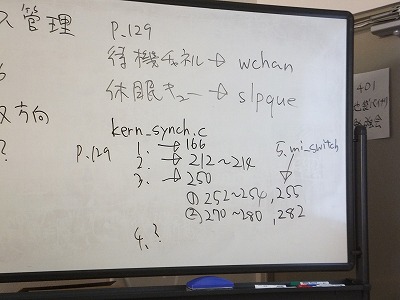 ス管理
P.129
待機チャネル→ wchan
休眠キュー→ slpque
方向
?
kern_synch.c
P.129
1. → 166
2. → 212~214
3. → 250
① 252~254, 255
② 270~280, 282
4. ?
5. mi_switch
401